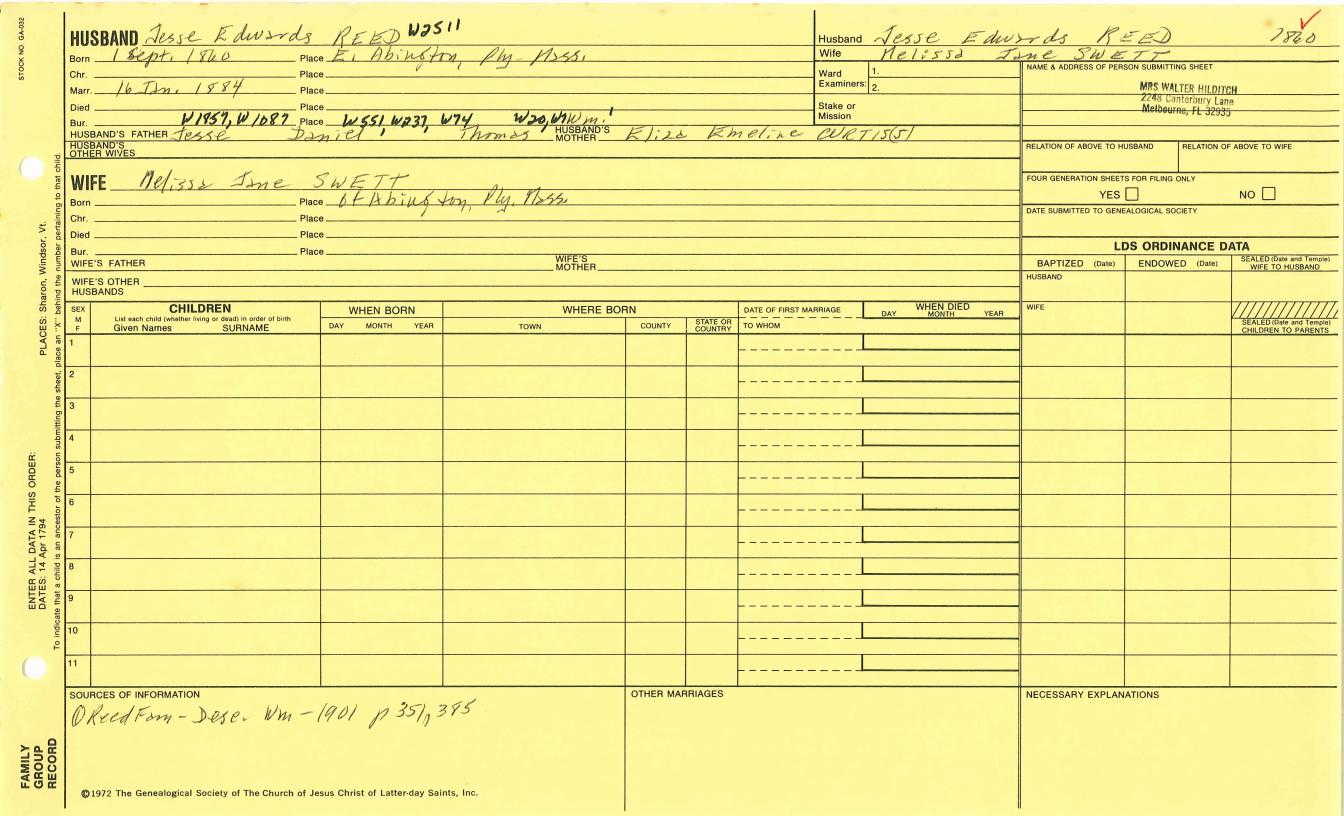 STOCK NO. GA-032
HUSBAND Jesse Edwards REED W2511
Born 1 Sept. 1860 Place E. Abington, Ply. Mass.
Chr. Place
Marr. 16 Jan. 1884 Place
Died Place
Bur. W1859, W1087 Place W551, W237, W74 W20, W7 Wm.'
HUSBAND'S FATHER Jesse Daniel, Thomas HUSBAND'S MOTHER Eliza Emeline CURTIS(S)
HUSBAND'S OTHER WIVES
WIFE Melissa Jane SWETT
Born Place of Abington, Ply. Mass.
Chr. Place
Died Place
Bur. Place
WIFE'S FATHER WIFE'S MOTHER
WIFE'S OTHER HUSBANDS
Husband Jesse Edwards REED 1860
Wife Melissa Jane SWETT
Ward Examiners: 1.
2.
Stake or Mission
NAME & ADDRESS OF PERSON SUBMITTING SHEET
MRS WALTER HILDITCH
2248 Canterbury Lane
Melbourne, FL 32935
RELATION OF ABOVE TO HUSBAND RELATION OF ABOVE TO WIFE
FOUR GENERATION SHEETS FOR FILING ONLY
YES NO
DATE SUBMITTED TO GENEALOGICAL SOCIETY
LDS ORDINANCE DATA
BAPTIZED (Date) ENDOWED (Date) SEALED (Date and Temple) WIFE TO HUSBAND
HUSBAND
WIFE
SEALED (Date and Temple) CHILDREN TO PARENTS
SEX M F
CHILDREN
List each child (whether living or dead) in order of birth
Given Names SURNAME
WHEN BORN
DAY MONTH YEAR
WHERE BORN
TOWN COUNTY STATE OR COUNTRY
DATE OF FIRST MARRIAGE
TO WHOM
WHEN DIED
DAY MONTH YEAR
1
2
3
4
5
6
7
8
9
10
11
SOURCES OF INFORMATION
① Reed Fam - Desc. Wm - 1901 p 351, 385
OTHER MARRIAGES
NECESSARY EXPLANATIONS
©1972 The Genealogical Society of The Church of Jesus Christ of Latter-day Saints, Inc.
FAMILY GROUP RECORD
ENTER ALL DATA IN THIS ORDER:
DATES: 14 Apr 1794
PLACES: Sharon, Windsor, Vt.
To indicate that a child is an ancestor of the person submitting the sheet, place an "X" behind the number pertaining to that child.